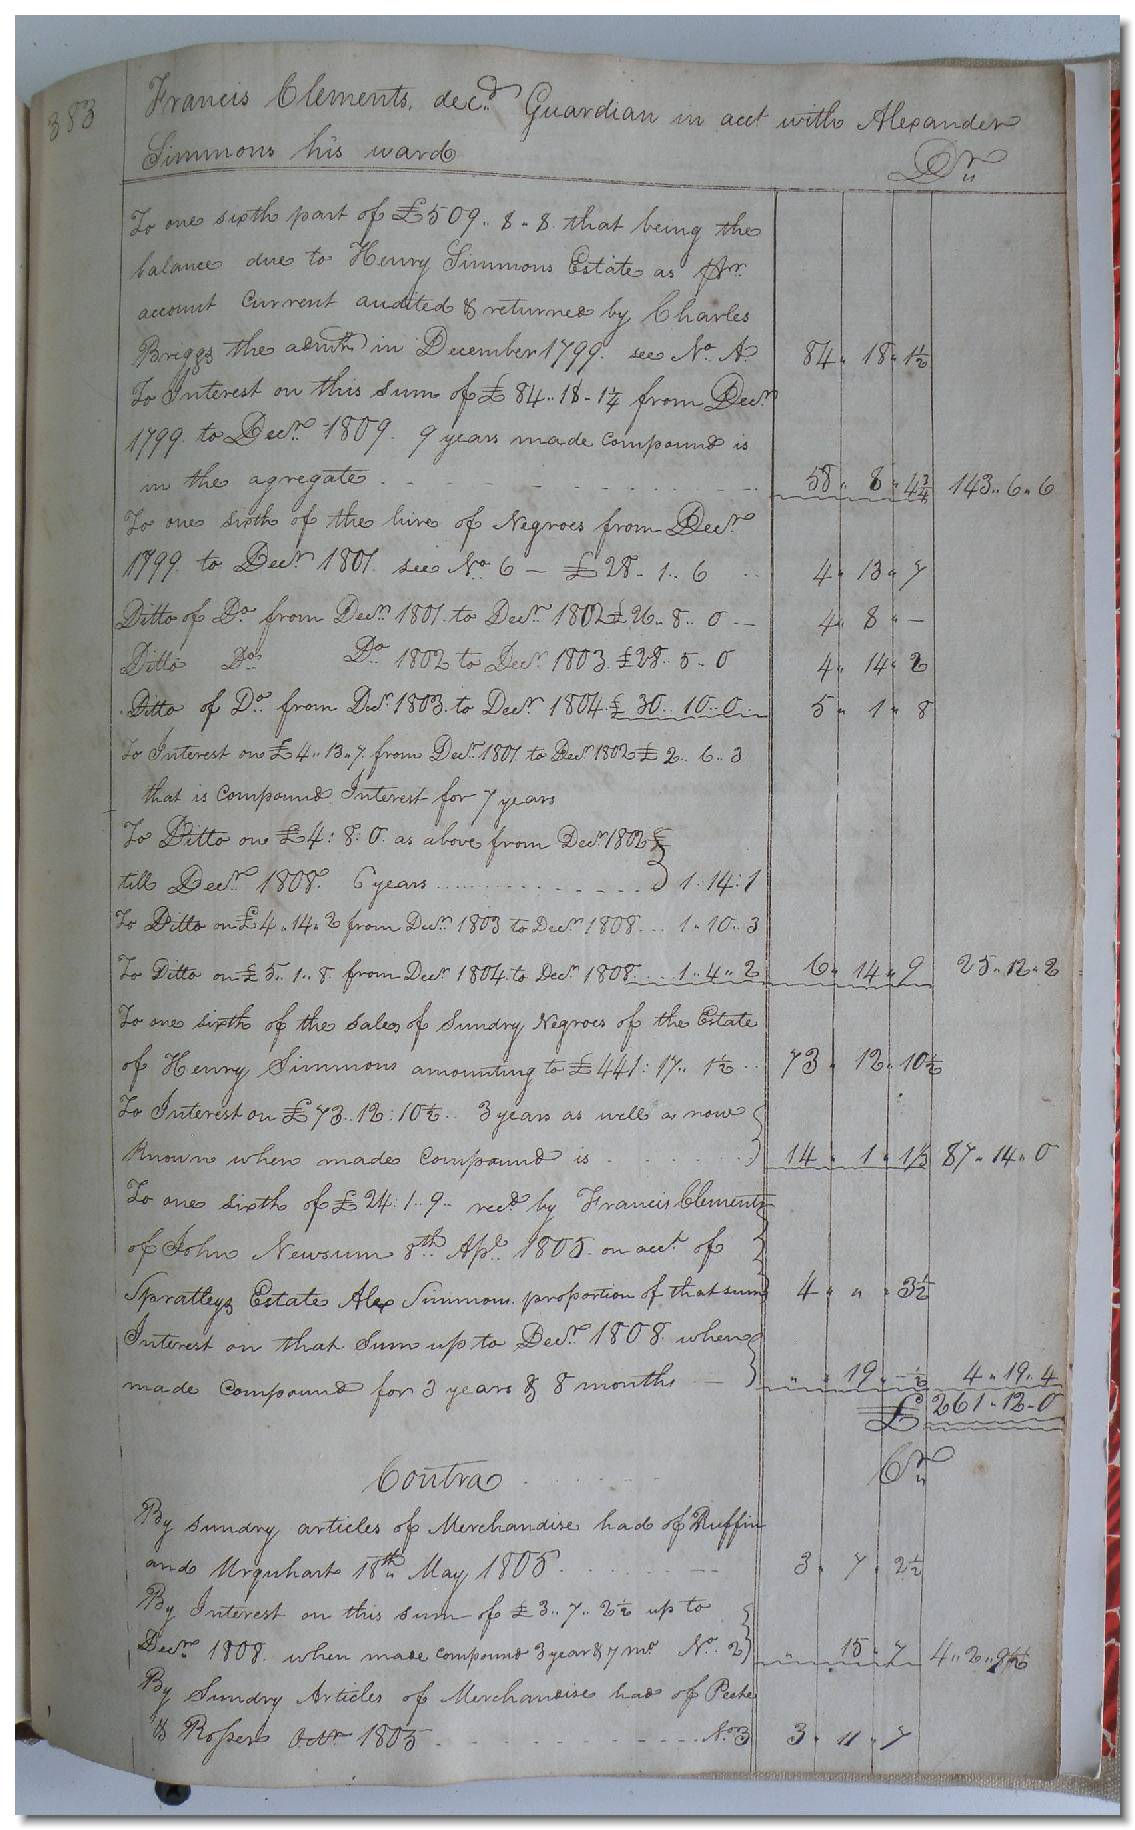 383
Francis Clements, decd Guardian in acct with Alexander
Simmons his ward
Dr
To one sixth part of £509.. 8.. 8. that being the
balance due to Henry Simmons Estate as pr
account Current audited & returned by Charles
Briggs the admtr in December 1799. see No. A. 84 .. 18 .. 1½
To Interest on this sum of £84..18-1¼ from Decr
1799 to Decr 1809. 9 years made compound is
in the agregate 58 .. 8 .. 4¾ 143..6..6
To one sixth of the hire of Negroes from Decr
1799 to Decr 1801. see No 6 - £28-1..6 4 .. 13 .. 7
Ditto of Do from Decr 1801. to Decr 1802 £26..8..0 - 4 .. 8 .. -
Ditto Do Do 1802 to Decr 1803. £28. 5-0 4 .. 14 .. 2
Ditto of Do from Decr 1803. to Decr 1804. £30..10..0 5 .. 1 .. 8
To Interest on £4..13..7 from Decr 1801 to Decr 1802 £2..6..3
that is compound Interest for 7 years
To Ditto on £4:8:0. as above from Decr 1802 £
till Decr 1808. 6 years 1:14:1
To Ditto on £4..14..2 from Decr 1803 to Decr 1808 1..10..3
To Ditto on £5..1..8 from Decr 1804 to Decr 1808 1..4..2 6 .. 14 .. 9 25..12..2
To one sixth of the sales of Sundry Negroes of the Estate
of Henry Simmons amounting to £441:17..1½ 73 .. 12 .. 10½
To Interest on £73..12:10½ 3 years as well as now
known when made compound is 14 .. 1 .. 1½ 87..14..0
To one sixth of £24:1..9.. recd by Francis Clements
of John Newsum 8th Apl 1805 on acct of
Spratleys Estate Alex Simmons proportion of that sum 4 .. " .. 3½
Interest on that Sum up to Decr 1808 when
made compound for 3 years & 8 months " .. 19 .. -½ 4..19..4
£ 261..12-0
Contra Cr
By sundry articles of Merchandise had of Ruffin
and Urquhart 18th May 1805 3 .. 7 .. 2½
By Interest on this sum of £3..7..2½ up to
Decr 1808. when made compound 3 year & 7 mo No. 2 " .. 15 .. 7 4..2..9½
By Sundry Articles of Merchandise had of Peete
& Rosser Octr 1805 No 3 3 .. 11 .. 7